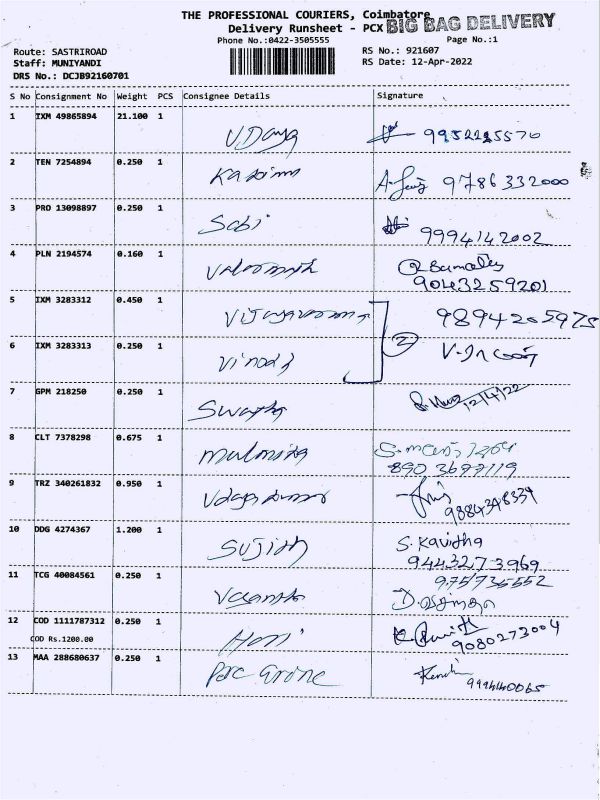 THE PROFESSIONAL COURIERS, Coimbatore
Delivery Runsheet - PCX BIG BAG DELIVERY
Phone No.:0422-3505555 Page No.:1
Route: SASTRIROAD RS No.: 921607
Staff: MUNIYANDI RS Date: 12-Apr-2022
DRS No.: DCJB92160701
S No Consignment No Weight PCS Consignee Details Signature
1 IXM 49865894 21.100 1
V. Daya 9952215570
2 TEN 7254894 0.250 1
9786332000
3 PRO 13098897 0.250 1
Sabi
9994142002
4 PLN 2194574 0.160 1
9043259201
5 IXM 3283312 0.450 1
9894205975
6 IXM 3283313 0.250 1 2
Vinoth
7 GPM 218250 0.250 1
Swapna 12/4/22
8 CLT 7378298 0.675 1
8903697119
9 TRZ 340261832 0.950 1
Udayakumar
9884348334
10 DDG 4274367 1.200 1
Sujith S. Kavitha
9443273969
11 TCG 40084561 0.250 1 975735552
Vasantha
12 COD 1111787312 0.250 1
COD Rs.1200.00 Hari 9080273004
13 MAA 288680637 0.250 1
999440065